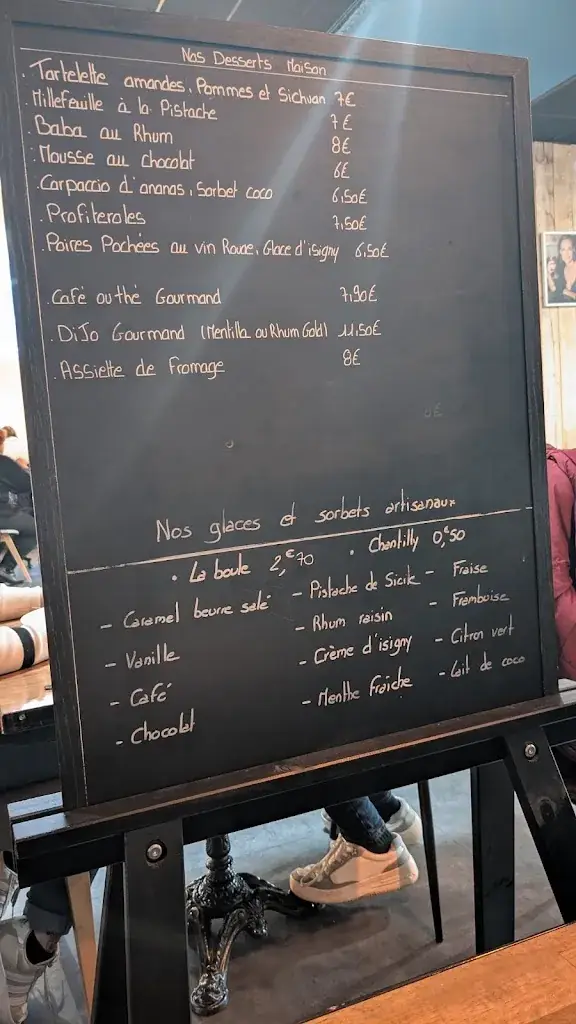 Nos Desserts Maison
. Tartelette amandes, Pommes et Sichuan 7€
. Millefeuille à la Pistache 7€
. Baba au Rhum 8€
. Mousse au chocolat 6€
. Carpaccio d'ananas, Sorbet coco 6,50€
. Profiteroles 7,50€
. Poires Pochées au vin Rouge, Glace d'isigny 6,50€
. Café ou thé Gourmand 7,90€
. DiJo Gourmand (Mentilla ou Rhum Gold) 11,50€
. Assiette de Fromage 8€
Nos glaces et sorbets artisanaux
• La boule 2,€70 • Chantilly 0,€50
- Caramel beurre salé - Pistache de Sicile - Fraise
- Vanille - Rhum raisin - Framboise
- Café - Crème d'isigny - Citron vert
- Chocolat - Menthe Fraîche - Lait de coco